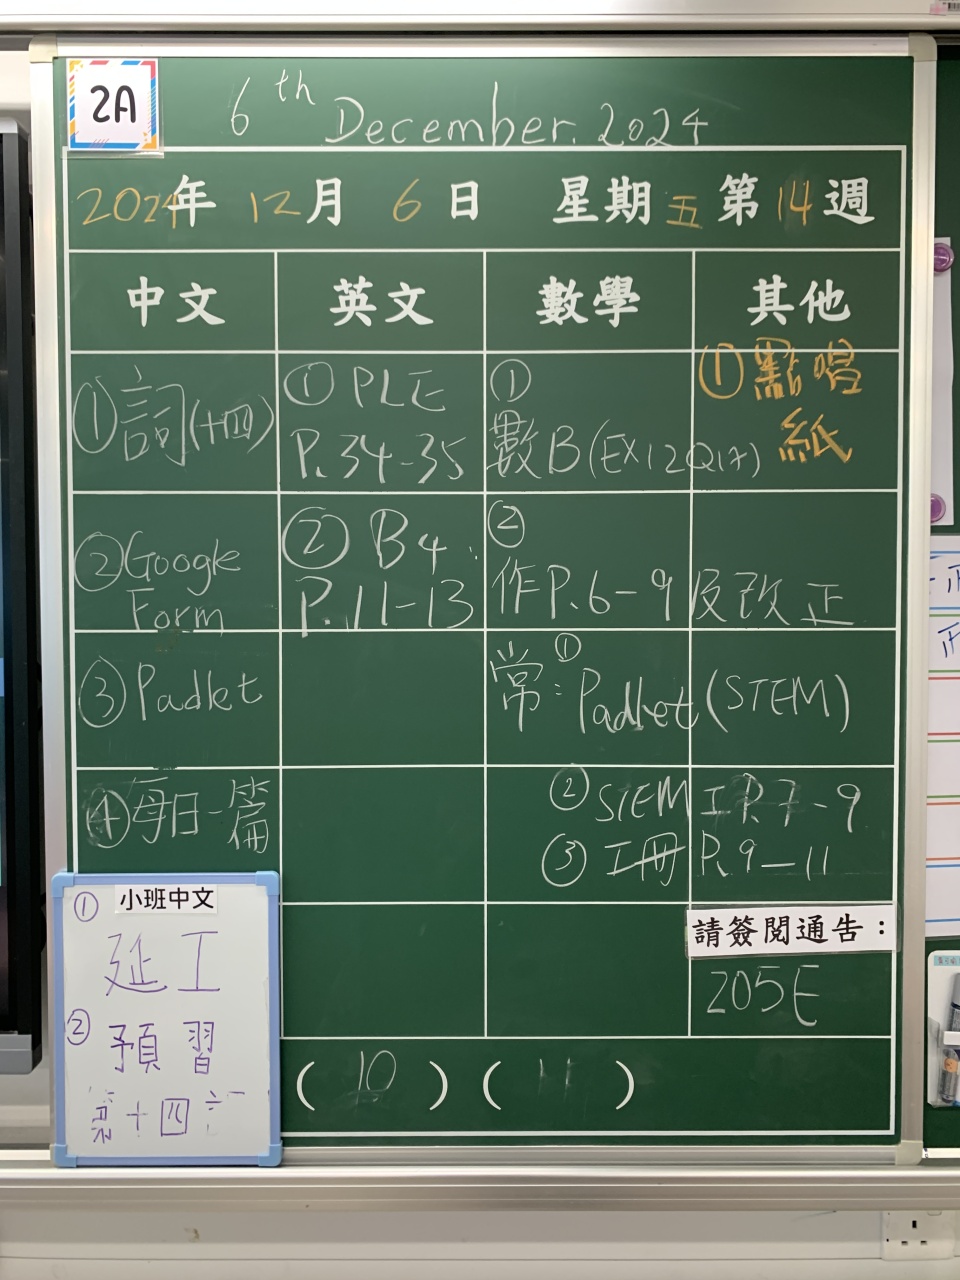 2A
6th December. 2024
2024年 12月 6日 星期五 第14週
中文 英文 數學 其他
①詞(十四)
① PLE
P.34-35
①
數B(EX12Q17)
①點唱
紙
②Google
Form
② B4
P.11-13
②
作P.6-9及改正
③Padlet
常:①Padlet(STEM)
④每日一篇
②STEM工P.7-9
③工冊P.9-11
請簽閱通告:
205E
(10) (11)
小班中文
①
延工
②
預習
第十四